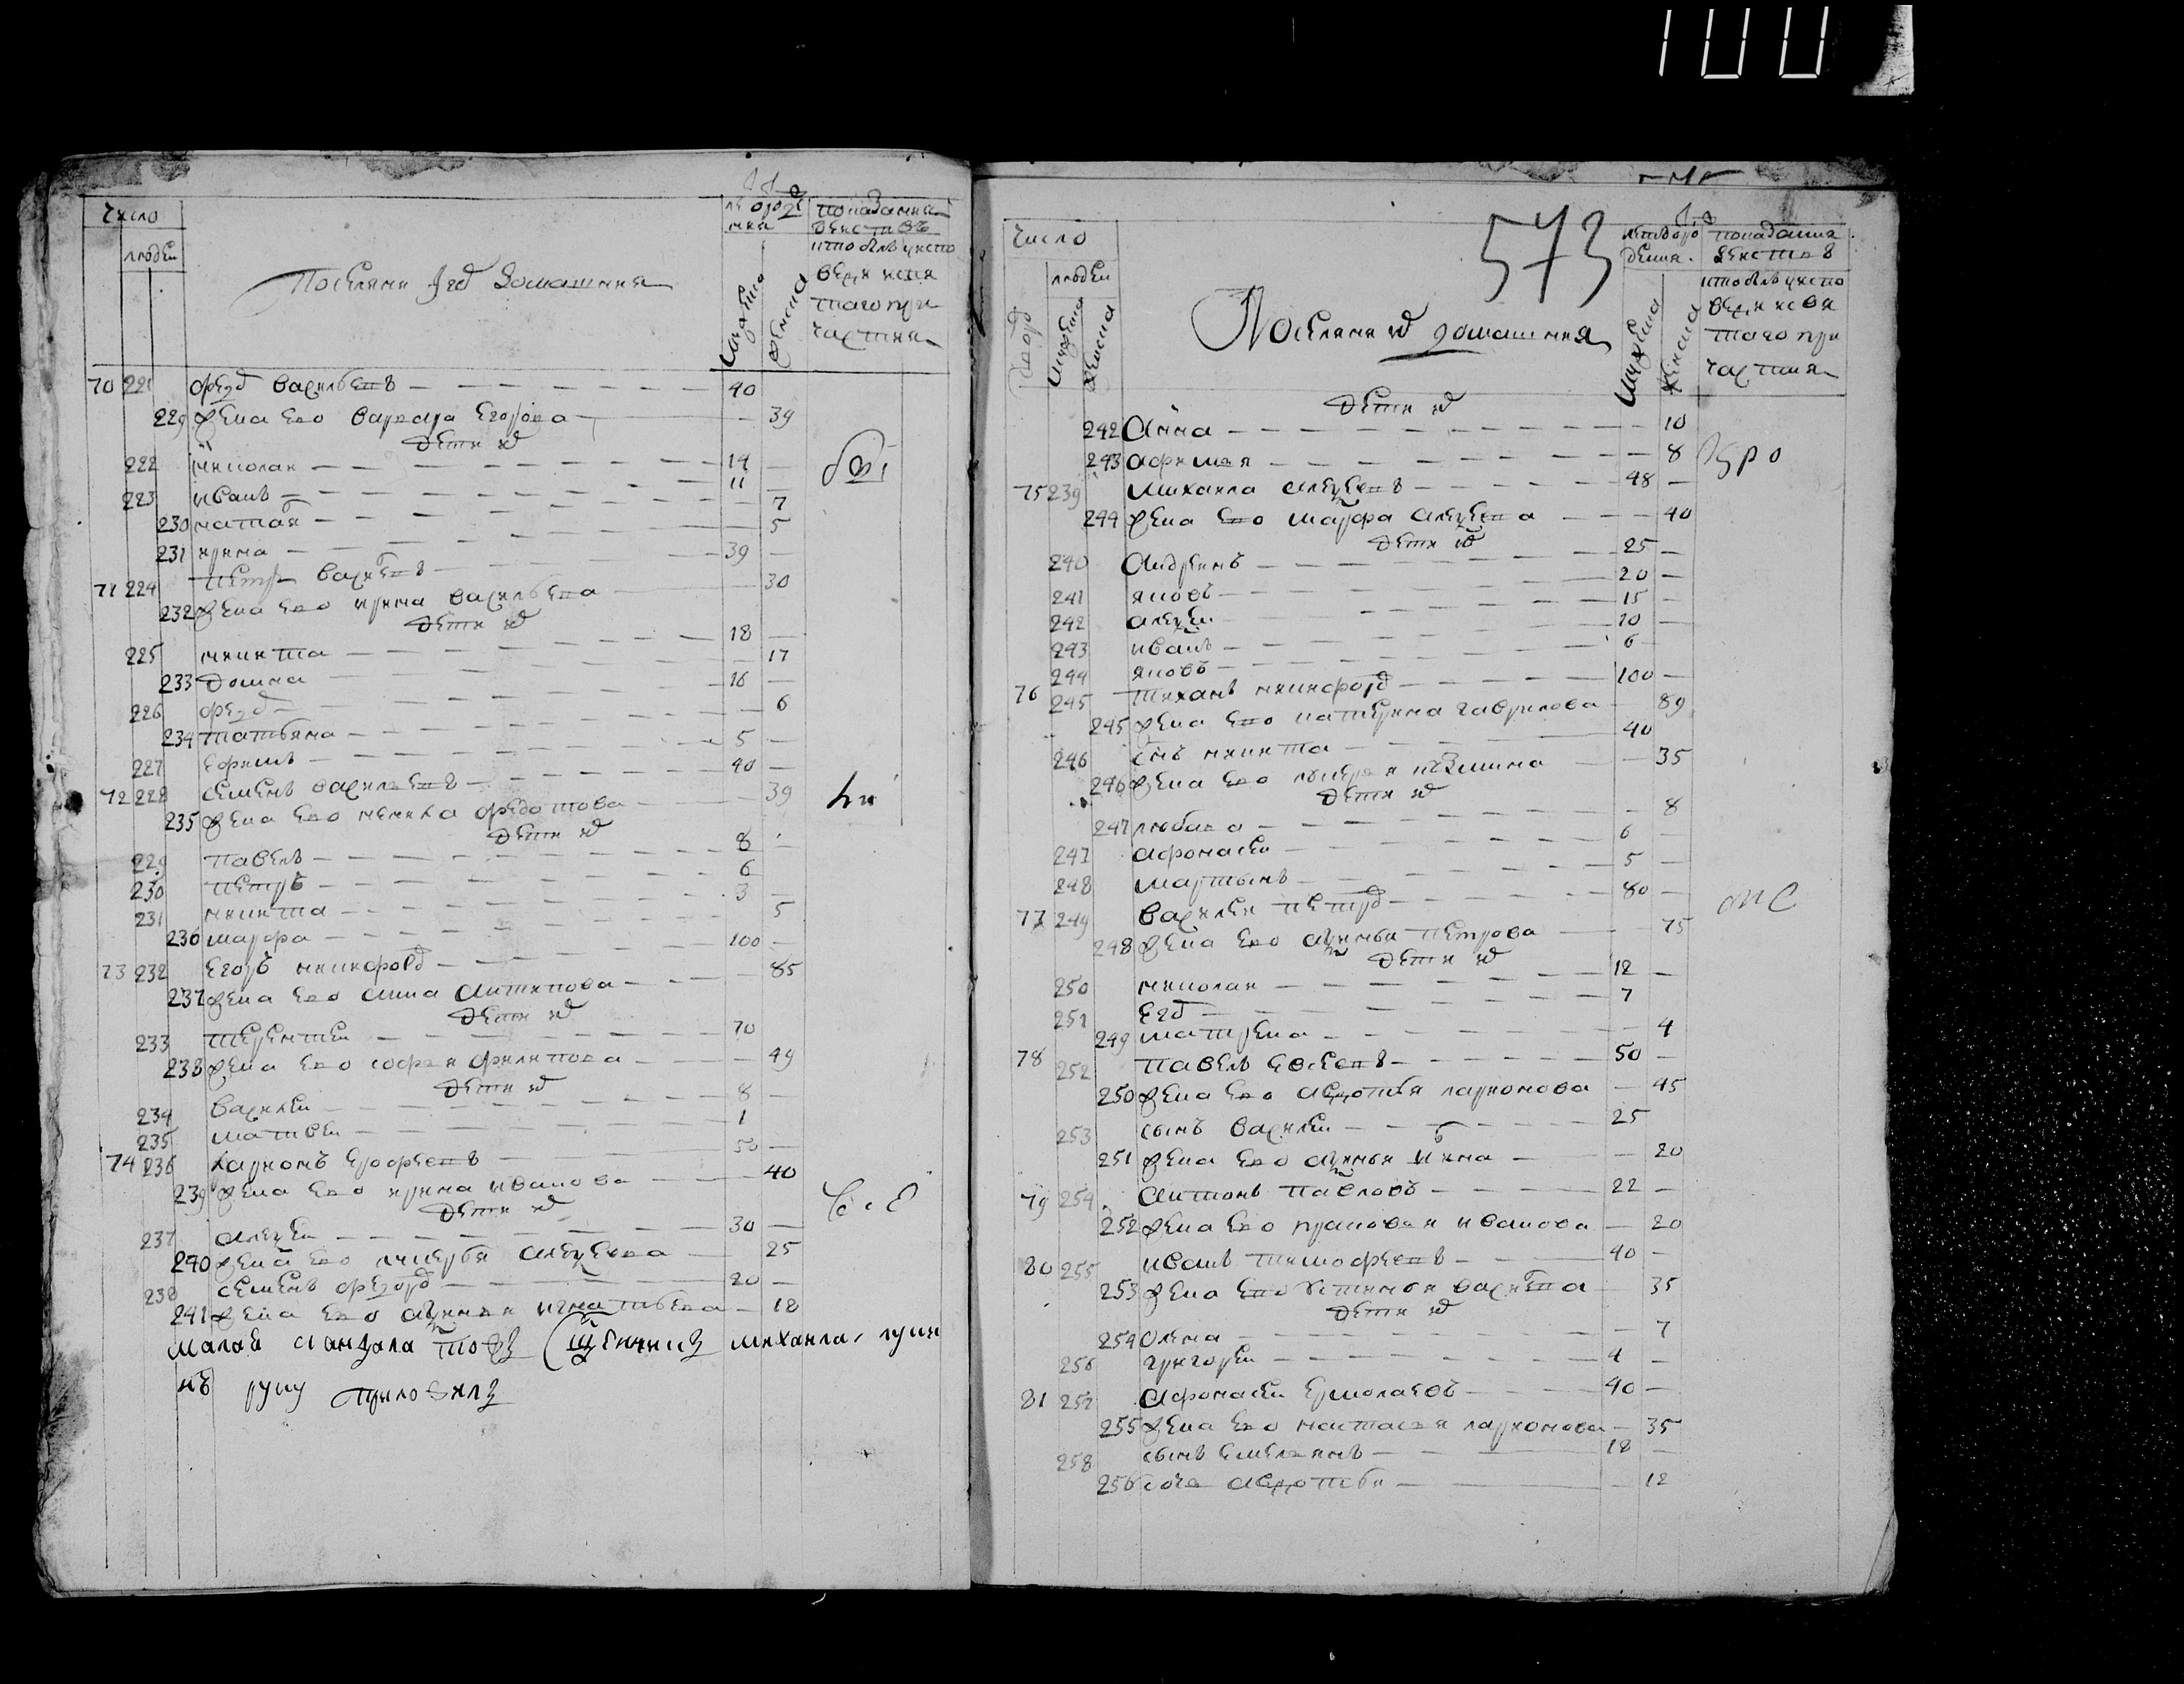 100
Число
людей
Поселяня и ихъ домашния
мужеска
женска
показания
хто былъ у испо
веди и свя
таго при
частия
70 221 Федоръ Васильевъ 40
229 Жена ево Варвара Егорова 39
Дети их
222 Николаи 14
223 Иванъ 11
230 Наталя 7
231 Ирина 5
71 224 Петръ Васильевъ 39
232 Жена ево Ирина Васильева 30
Дети их
225 Никита 18
233 Домна 17
226 Федоръ 16
234 Татьяна 6
227 Ефимъ 5
72 228 Семенъ Васильевъ 40
235 Жена ево Ненила Федотова 39
Дети их
229 Павелъ 8
230 Петръ 6
231 Никита 3
236 Марфа 5
73 232 Егоръ Никифоровъ 100
237 Жена ево Анна Антипова 85
Дети их
233 Терентеи 70
238 Жена ево Софья Филипова 49
Дети их
234 Василеи 8
235 Матвеи 1
74 236 Ларионъ Ерофеевъ 50
239 Жена ево Ирина Иванова 40
Дети их
237 Алексеи 30
240 Жена ево Лукерья Алексеева 25
238 Семенъ Федоровъ 20
241 Жена ево Аксинья Игнатьева 18
Михаила
руку приложилъ
573
Число
людей
мужеска
женска
Поселяня и их домашния
мужеска
женска
показания
хто былъ у испо
веди и свя
таго при
частия
Дети их
242 Анна 10
243 Афимья 8
75 239 Михаила Алексеевъ 48
244 Жена ево Марфа Алексеева 40
Дети их
240 Андреянъ 25
241 Яковъ 20
242 Алексеи 15
243 Иванъ 10
244 Яковъ 6
76 245 Тиханъ Никифоровъ 100
245 Жена ево Катерина Гаврилова 89
246 Снъ Никита 40
246 Жена ево Лукерья Кузмина 35
Дети их
247 Любава 8
247 Афонасеи 6
248 Мартынъ 5
77 249 Василеи Петровъ 80
248 Жена ево Аксинья Петрова 75
Дети их
250 Николаи 12
251 Егоръ 7
249 Матрена 4
78 252 Павелъ Евсеевъ 50
250 Жена ево Авдотья Ларионова 45
253 Сынъ Василеи 25
251 Жена ево Аксинья 20
79 254 Антонъ Павловъ 22
252 Жена ево Прасковья Иванова 20
80 255 Иванъ Тимофеевъ 40
253 Жена ево Устинья Васильева 35
Дети их
254 Олена 7
256 Григореи 4
81 257 Афонасеи Ермолаевъ 40
255 Жена ево Настасья Ларионова 35
258 Сынъ Емельянъ 18
256 Дочь Авдотья 12